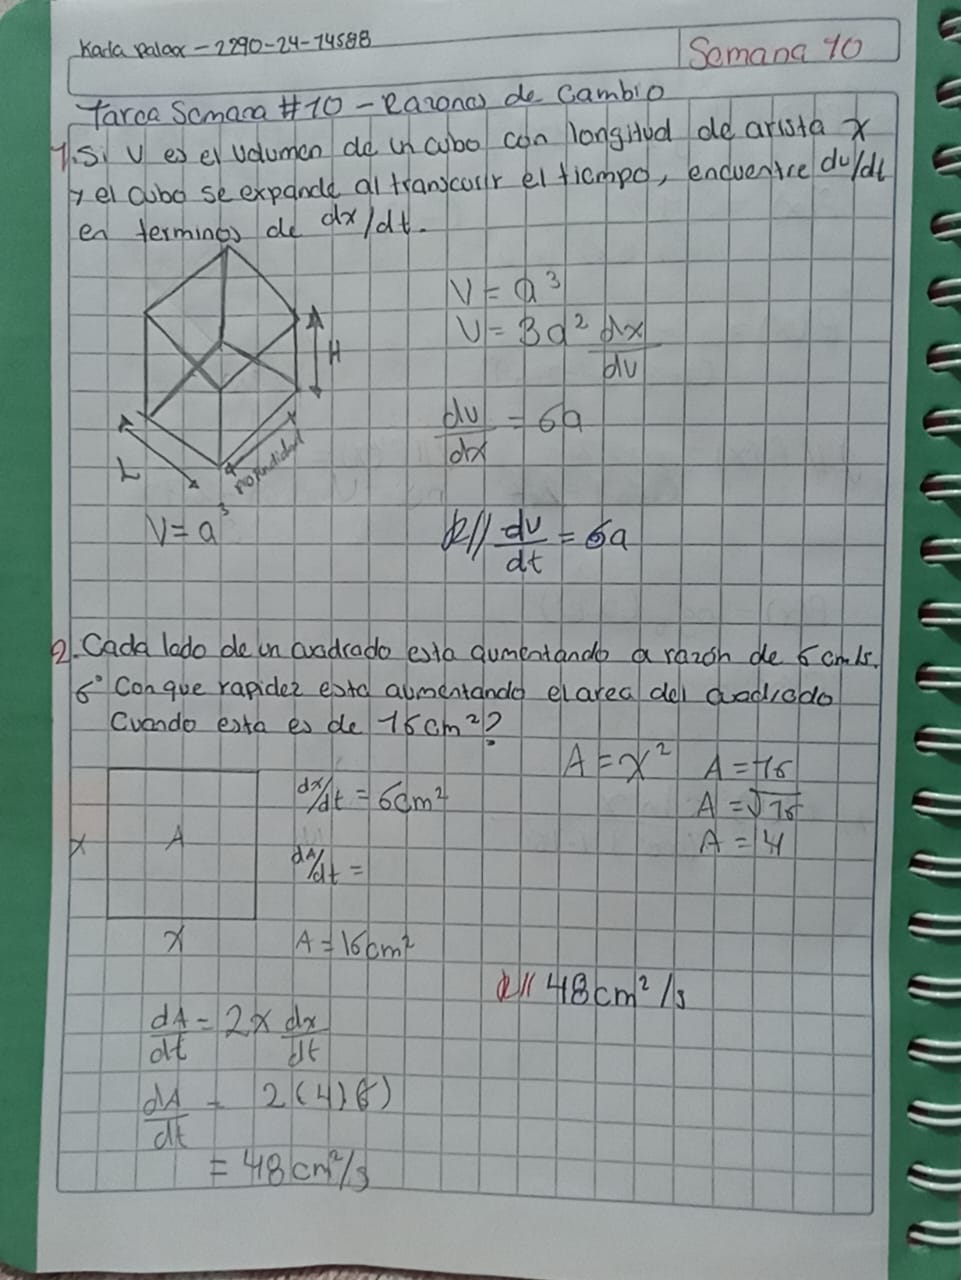 Karla Palax - 2290-24-14588
Semana 10
Tarea Semana #10 - Razones de Cambio
1. Si V es el volumen de un cubo con longitud de arista x
y el cubo se expande al transcurir el tiempo, encuentre dv/dt
en terminos de dx/dt.
V = a³
V = 3a² dx/dv
H
dv/dx = 6a
L
Profundidad
V = a³
R// dv/dt = 6a
2. Cada lado de un cuadrado esta aumentando a razón de 6 cm/s.
6° Con que rapidez esta aumentando el area del cuadrado
Cuando esta es de 16cm²?
A = x² A = 16
dx/dt = 6cm² A = √16
x A A = 4
dA/dt =
x A = 16cm²
R// 48cm²/s
dA/dt = 2x dx/dt
dA/dt = 2(4)6)
= 48cm²/s